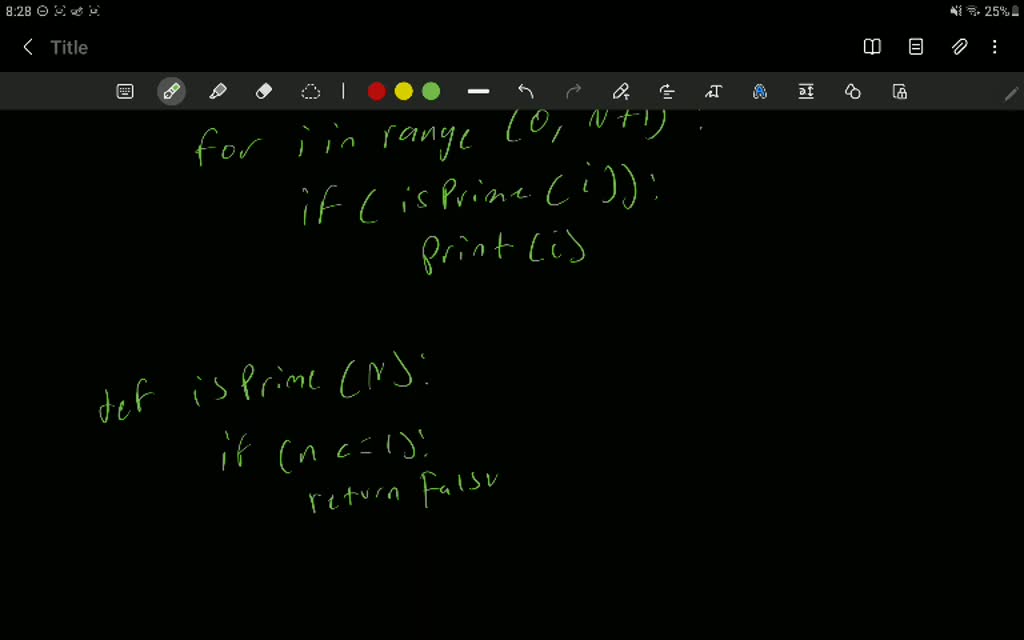 8:28 25%
Title
for i in range (0, N+1) :
if ( isPrime ( i ) ) :
print (i)
def isPrime (N) :
if (n <= 1) :
return False